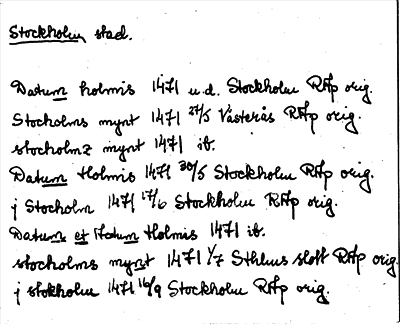 Stockholm, stad.
Datum holmis 1471 u.d. Stockholm RAp orig.
Stocholms mynt 1471 27/5 Västerås RAp orig.
stocholmz mynt 1471 ib.
Datum Holmis 1471 30/5 Stockholm RAp orig.
j Stocholm 1471 17/6 Stockholm RAp orig.
Datum et Actum Holmis 1471 ib.
stocholms mynt 1471 1/7 Sthlms slott RAp orig.
j stokholm 1471 16/9 Stockholm RAp orig.